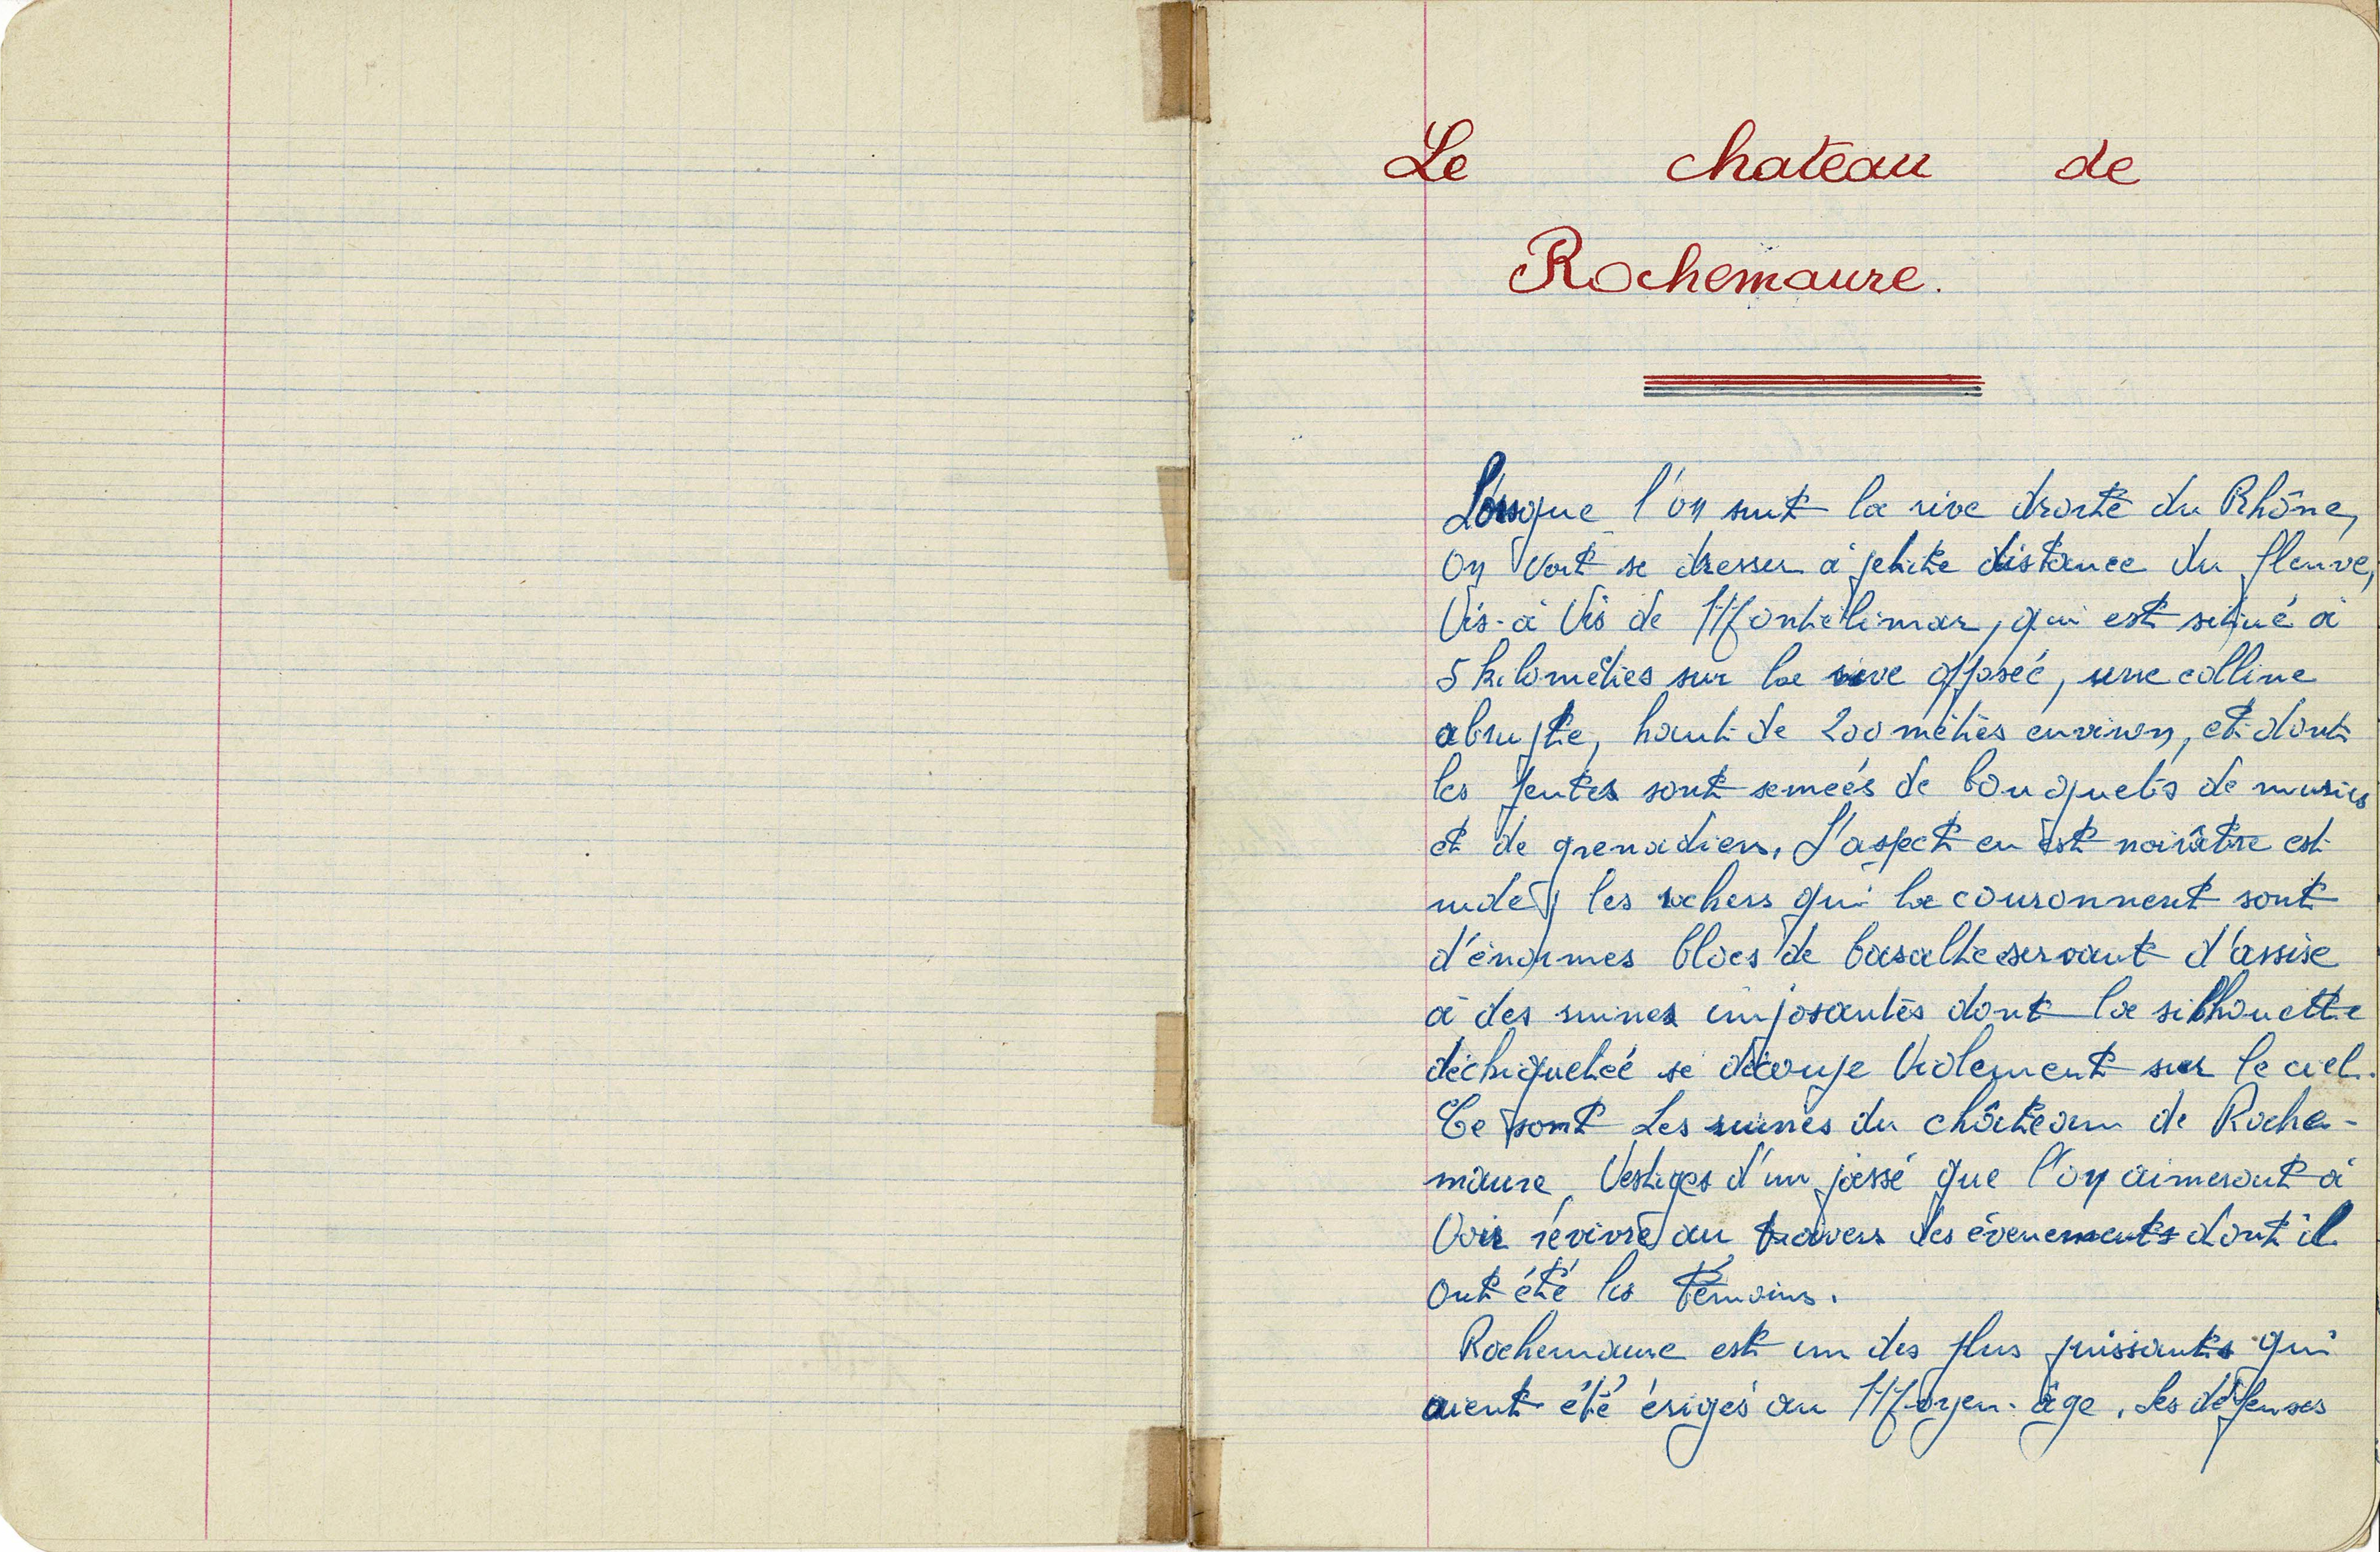 Le chateau de
Rochemaure.
Lorsque l'on suit la rive droite du Rhône,
on voit se dresser à petite distance du fleuve,
Vis-à Vis de Montélimar, qui est situé à
5 kilomètres sur la rive opposée, une colline
abrupte, haut de 200 mètres environ, et dont
les pentes sont semées de bouquets de muriers
et de grenadiers. L'aspect en est noirâtre est
rude, les rochers qui la couronnent sont
d'énormes blocs de basalte servant d'assise
à des ruines imposantes dont la silhouette
déchiquetée se découpe Violement sur le ciel.
Ce sont Les ruines du château de Roche-
maure, Vestiges d'un passé que l'on aimerait à
Voir révivre au travers des évenements dont il
ont été les témoins.
Rochemaure est un des plus puissants qui
aient été érigés au Moyen-âge. Les défenses